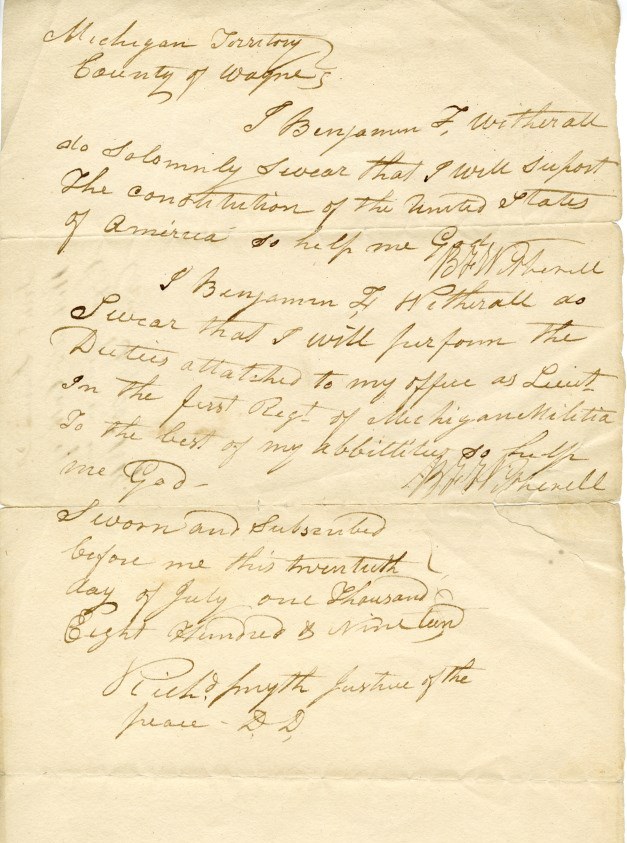 Michigan Territory
County of Wayne s.
I Benjamin F. Witherall
do Solomnly Swear that I will Suport
The constitution of the United States
of America so help me God
B F Witherell
I Benjamin F. Witherall do
Swear that I will perform the
Duties attatched to my office as Lieut
In the first Regt of Michigan Militia
To the best of my abbillities so help
me God -
B F Witherell
Sworn and Subscribed
before me this twentieth
day of July one Thousand
Eight Hundred & Nineteen
Richd. Smyth Justice of the
peace - D. D.